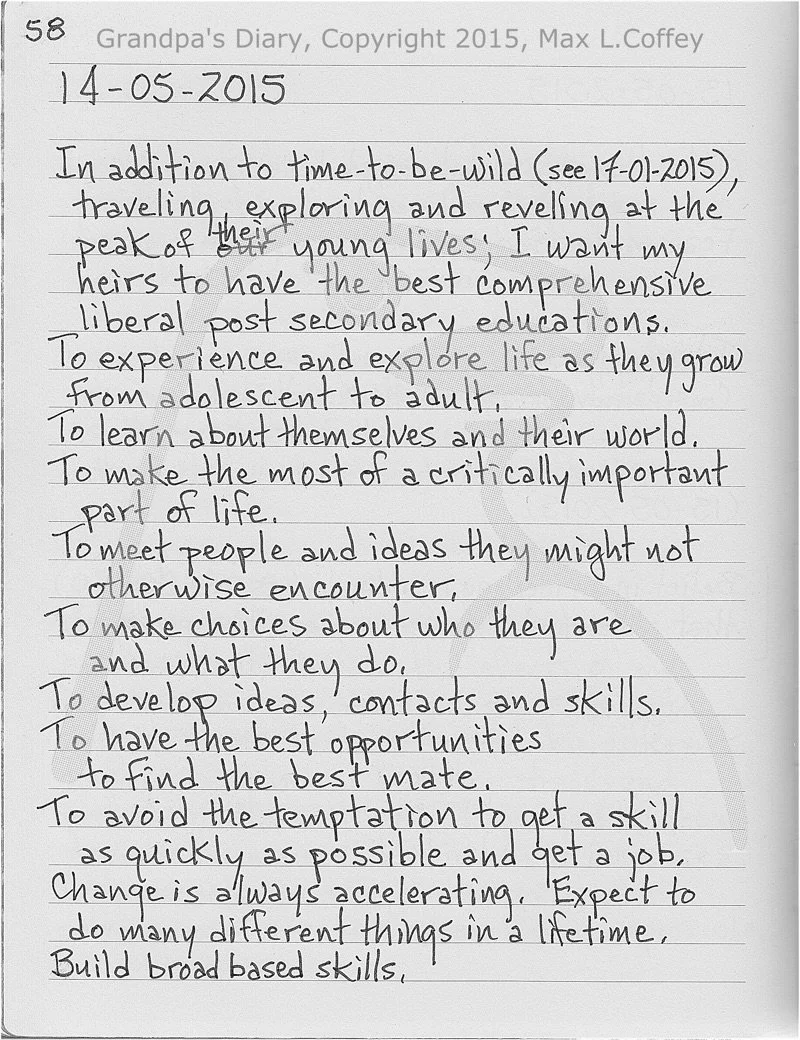 58
Grandpa's Diary, Copyright 2015, Max L.Coffey
14-05-2015
In addition to time-to-be-wild (see 17-01-2015),
traveling, exploring and reveling at the
peak of their young lives; I want my
heirs to have the best comprehensive
liberal post secondary educations.
To experience and explore life as they grow
from adolescent to adult.
To learn about themselves and their world.
To make the most of a critically important
part of life.
To meet people and ideas they might not
otherwise encounter.
To make choices about who they are
and what they do.
To develop ideas, contacts and skills.
To have the best opportunities
to find the best mate.
To avoid the temptation to get a skill
as quickly as possible and get a job.
Change is always accelerating. Expect to
do many different things in a lifetime.
Build broad based skills.